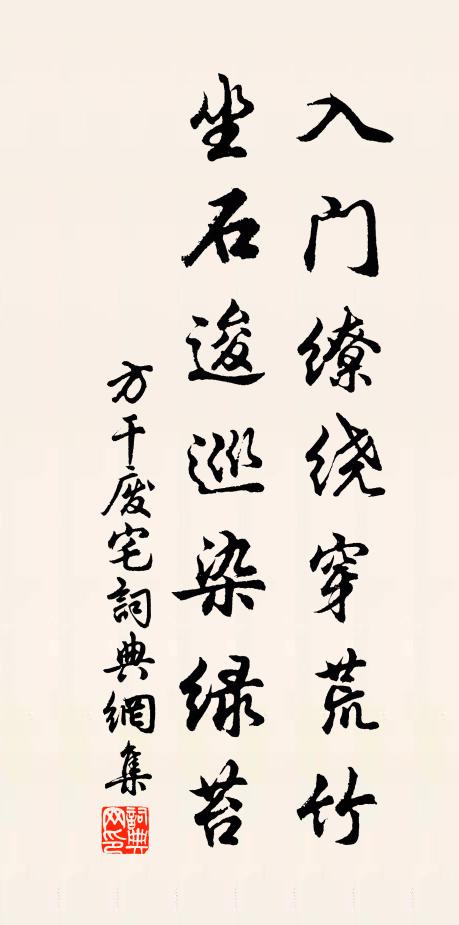 入门缭绕穿荒竹
坐石逡巡染绿苔
方干废宅詞典網集
詞典网印